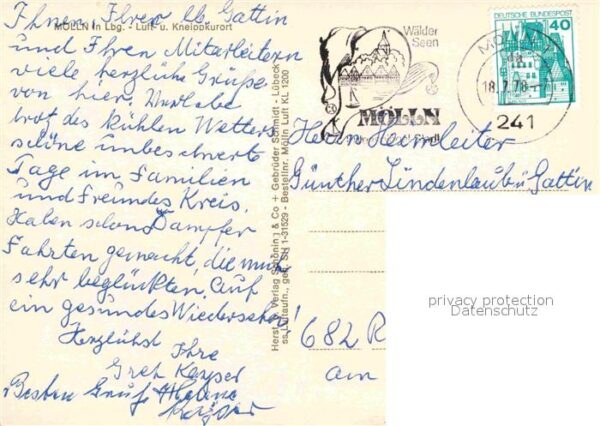 MÖLLN in Lbg. - Luft- u. Kneippkurort
Ihnen, Ihrer lb. Gattin
und Ihren Mitarbeitern
viele herzliche Grüße
von hier. Verlebe
trot des kühlen Wetters
schöne unbeschwerte
Tage im Familien
und Freundes Kreis.
Haben schon Dampfer
Fahrten gemacht, die mich
sehr beglückten. Auf
ein gesundes Wiedersehen!
Herzlichst Ihre
Gret Kayser
Besten Gruß Helene
Kayser
Herst. u. Verlag Schöning & Co + Gebrüder Schmidt - Lübeck
ss. Luftaufn., gen. SH 1-31529 - Bestellnr. Mölln Luft KL 1200
Wälder
Seen
MÖLLN
DEUTSCHE BUNDESPOST
40
MÖLLN
18.7.78
241
Herrn Heimleiter
Günther Lindenlaub u. Gattin
682 R
am
privacy protection
Datenschutz